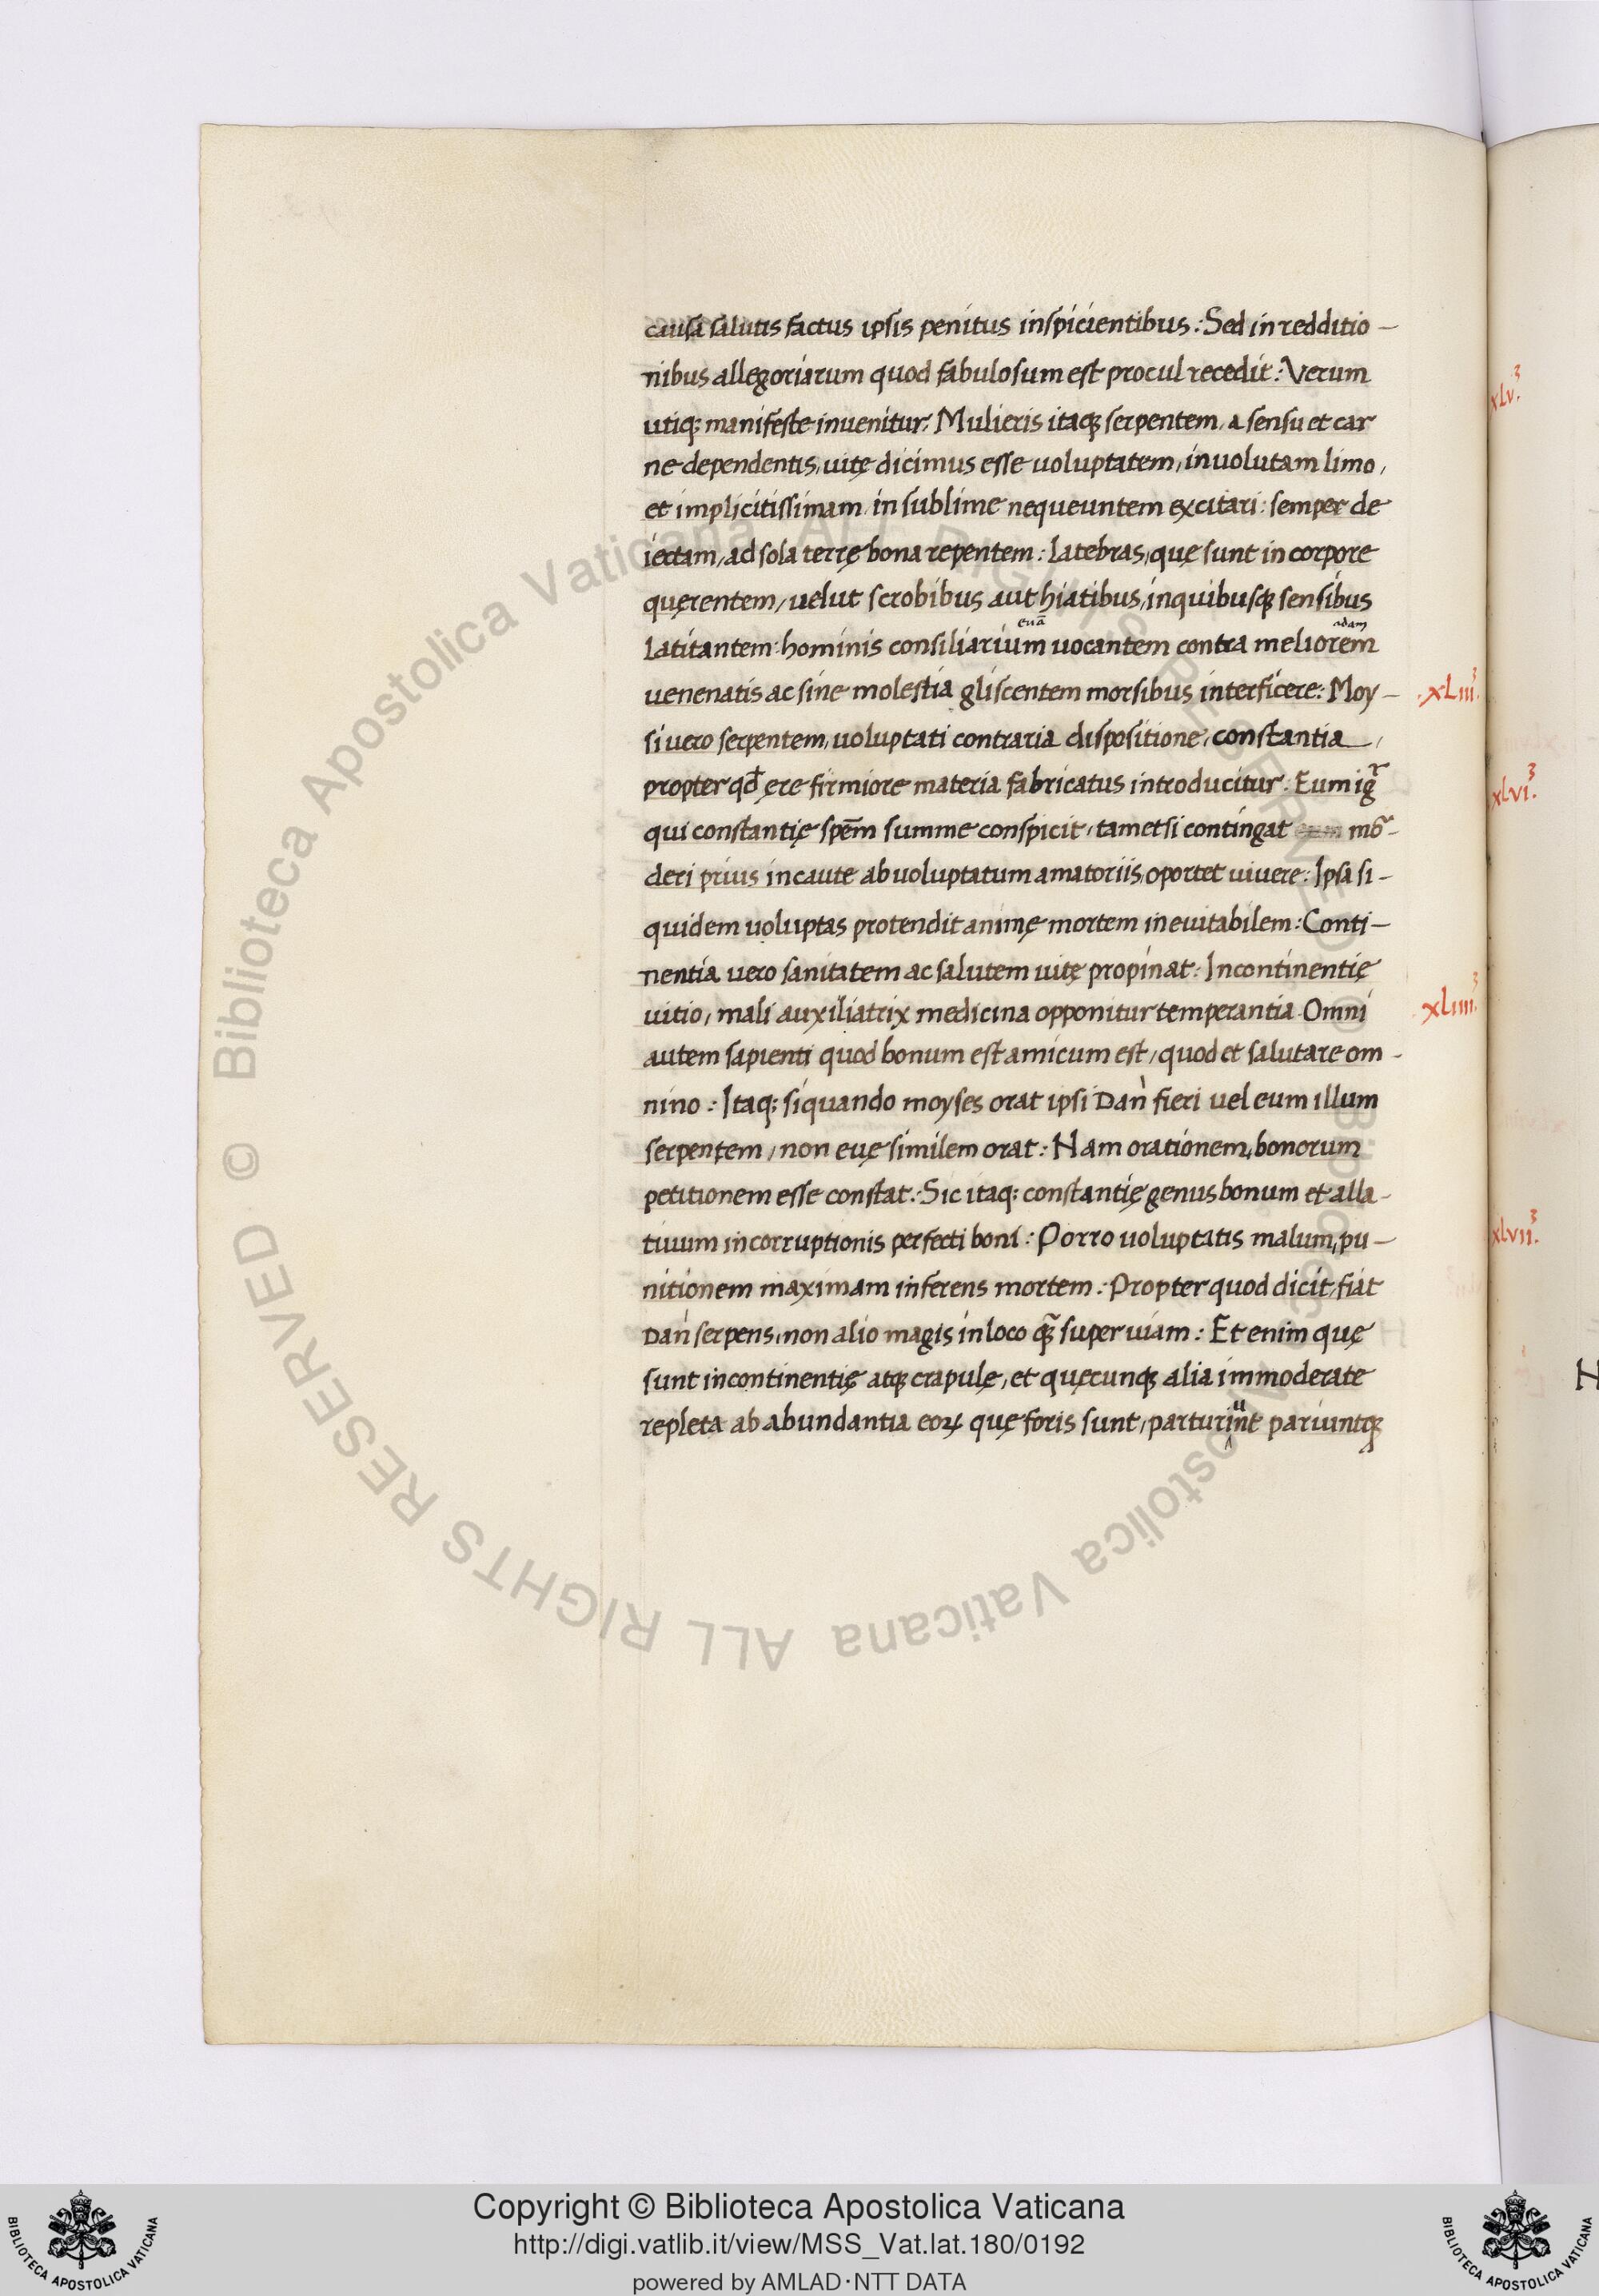 causa salutis factus ipsis penitus inspicientibus : Sed in redditio –
nibus allegoriarum quod fabulosum est procul recedit : Verum
utiq; manifeste inuenitur. Mulieris itaq; serpentem, a sensu et car
ne dependentis, uitę dicimus esse uoluptatem, inuolutam limo,
et implicitissimam in sublime nequeuntem excitari : semper de
iectam, ad sola terrę bona repentem : latebras, quę sunt in corpore
quęrentem, uelut scrobibus aut hiatibus, inquibusq; sensibus
euā adam
latitantem : hominis consiliarium uocantem contra meliorem
uenenatis ac sine molestia gliscentem morsibus interficere : Moy –
.xLiii.3
si uero serpentem, uoluptati contraria dispositione, constantia,
propter qd̄ ęre firmiore materia fabricatus introducitur : Eum igr̃
qui constantię spēm summe conspicit, tametsi contingat mõr –
deri prius incaute ab uoluptatum amatoriis, oportet uiuere : Ipsa si –
quidem uoluptas protendit animę mortem ineuitabilem : Conti –
nentia uero sanitatem ac salutem uitę propinat : Incontinentię
uitio, mali auxiliatrix medicina opponitur temperantia. Omni
xLiiii.3
autem sapienti quod bonum est amicum est, quod et salutare om –
nino : Itaq; siquando moyses orat ipsi Dan fieri uel eum illum
serpentem, non euę similem orat : Nam orationem, bonorum
petitionem esse constat : Sic itaq; constantię genus bonum et alla –
tiuum incorruptionis perfecti boni : Porro uoluptatis malum, pu –
nitionem maximam inferens mortem : Propter quod dicit, fiat
Dan serpens, non alio magis in loco q̃; super uiam : Et enim quę
sunt incontinentię atq; crapulę, et quęcunq; alia immoderate
repleta ab abundantia eoꝝ quę foris sunt, parturiunt pariuntq;
xLv.3
xLvi.3
xLvii.3
H
© Biblioteca Apostolica Vaticana ALL RIGHTS RESERVED © Biblioteca Apostolica Vaticana ALL RIGHTS RESERVED
BIBLIOTECA APOSTOLICA VATICANA
Copyright © Biblioteca Apostolica Vaticana
http://digi.vatlib.it/view/MSS_Vat.lat.180/0192
powered by AMLAD·NTT DATA
BIBLIOTECA APOSTOLICA VATICANA